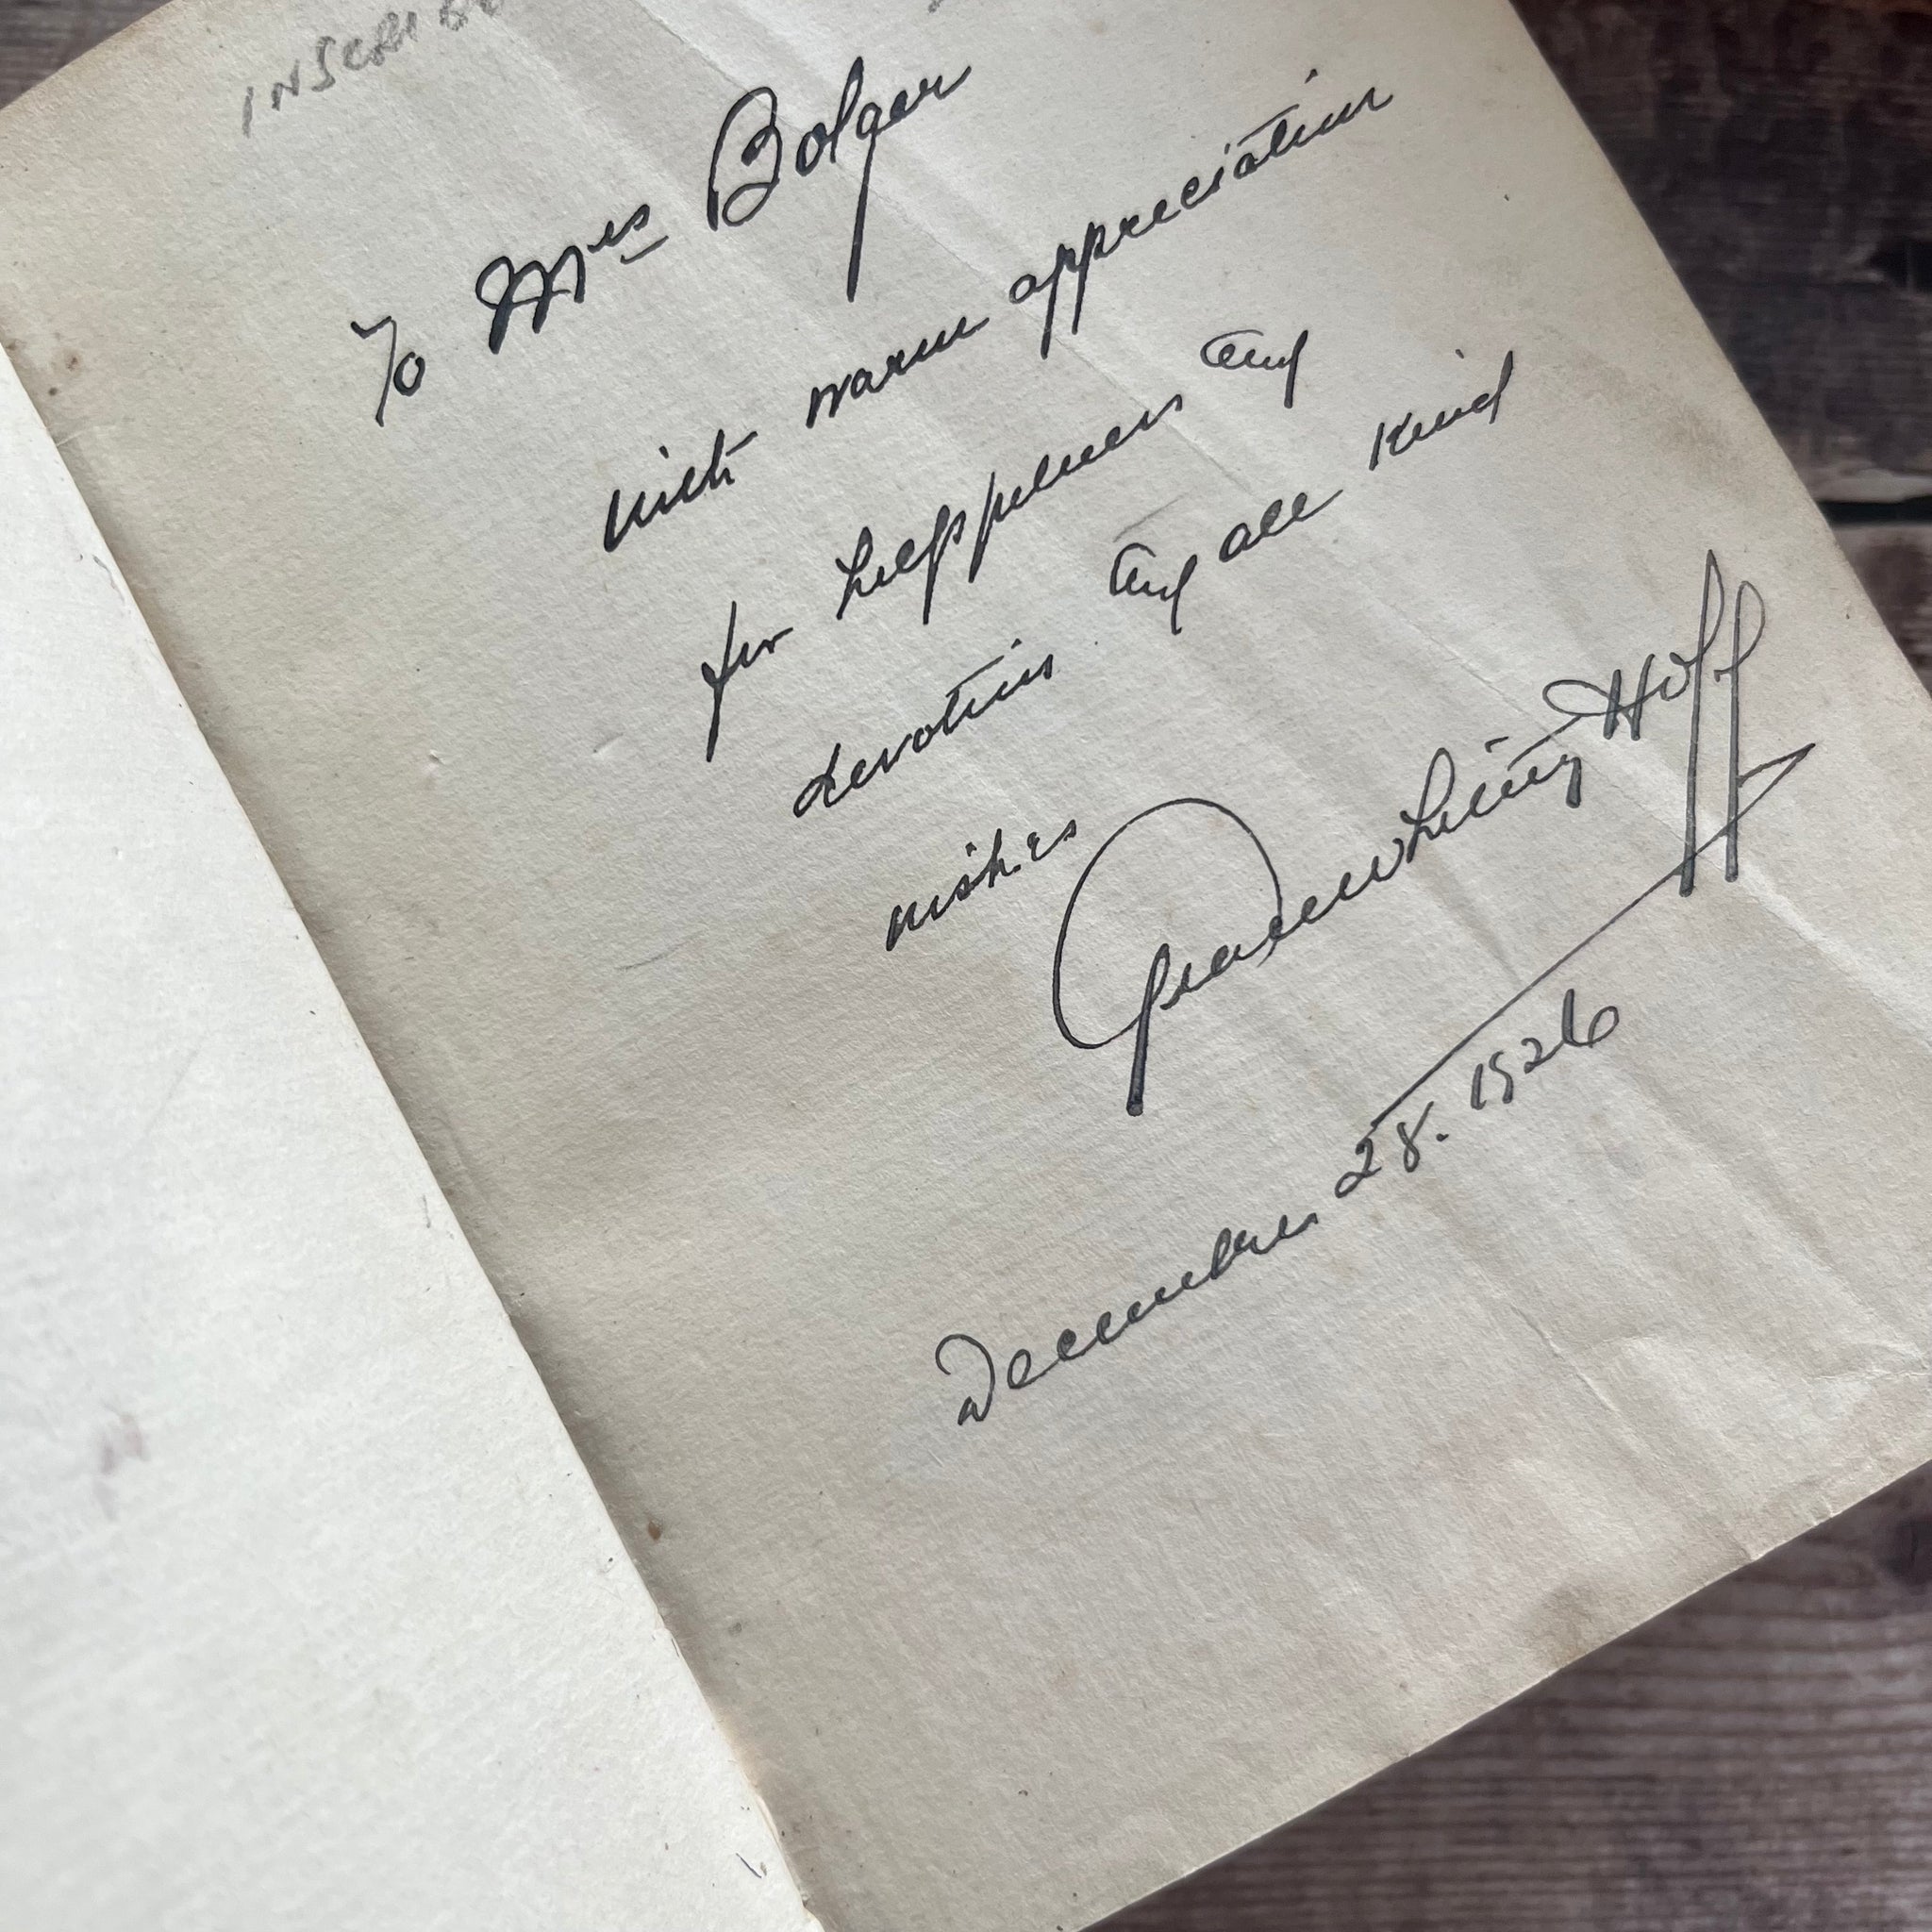 To Mrs Bolger
with warm appreciation
for helpfulness and
devotion and all kind
wishes
Grace Whiting Hoff
December 28. 1926